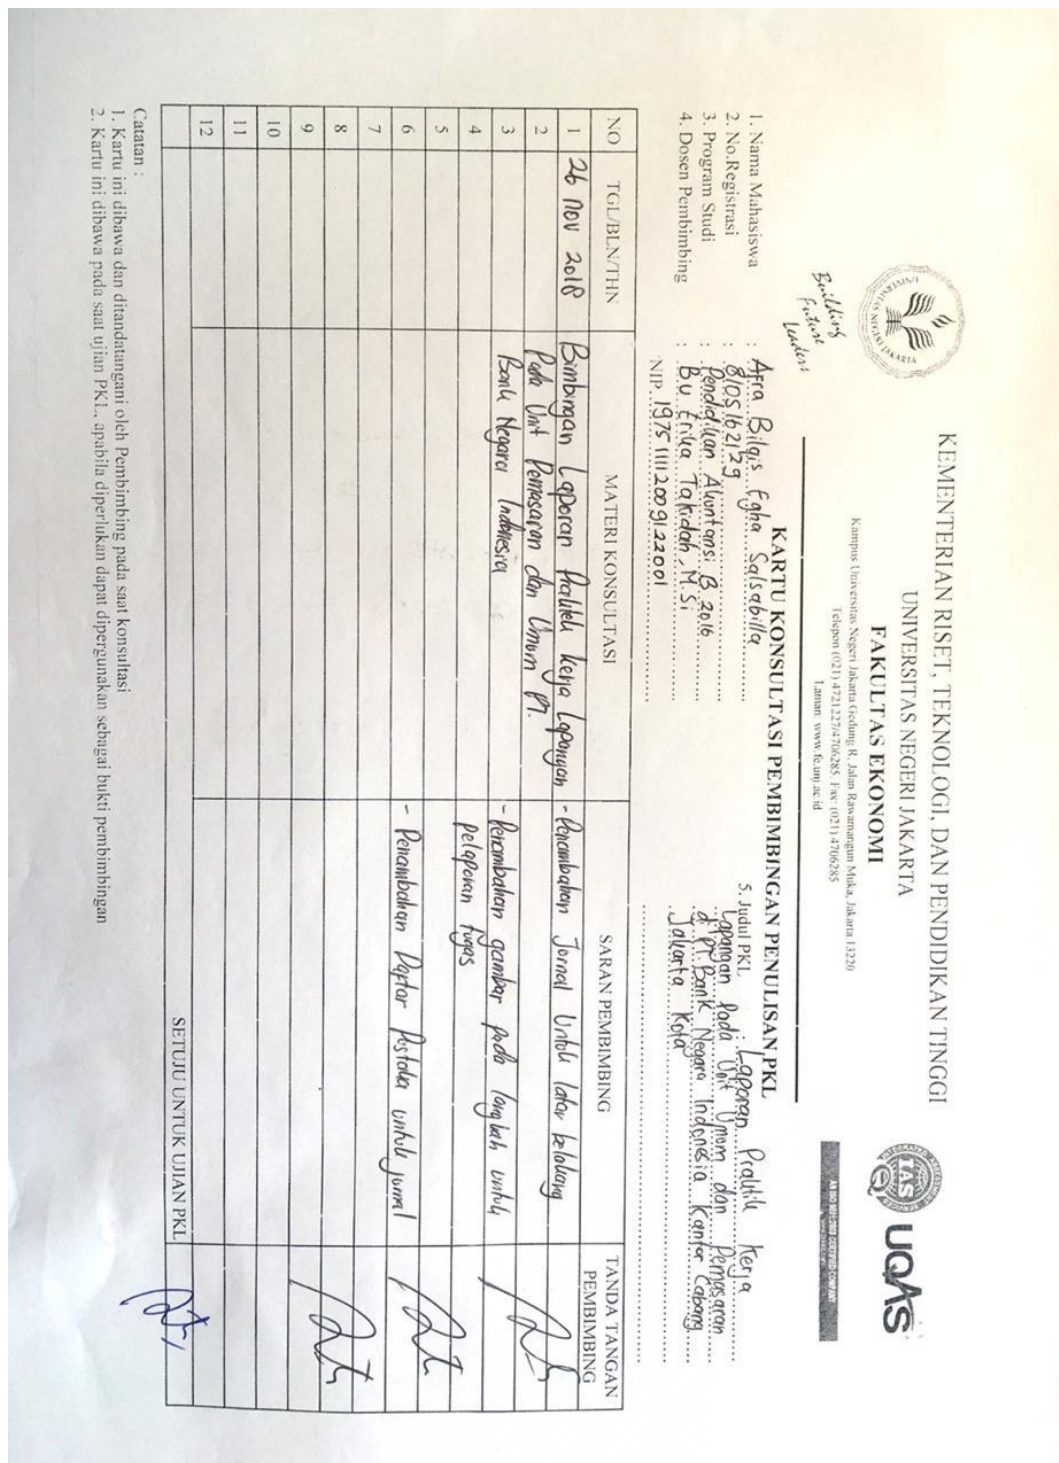 KEMENTERIAN RISET, TEKNOLOGI, DAN PENDIDIKAN TINGGI
UNIVERSITAS NEGERI JAKARTA
FAKULTAS EKONOMI
Kampus Universitas Negeri Jakarta Gedung R, Jalan Rawamangun Muka, Jakarta 13220
Telepon (021) 4721227/4706285, Fax: (021) 4706285
Laman: www.fe.unj.ac.id
UNIVERSITAS NEGERI JAKARTA
Building
Future
Leaders
IAS
UQAS
KARTU KONSULTASI PEMBIMBINGAN PENULISAN PKL
1. Nama Mahasiswa : Afra Bilqis Faha Salsabilla
2. No.Registrasi : 8105162129
3. Program Studi : Pendidikan Akuntansi B 2016
4. Dosen Pembimbing : Bu Erika Takidah, M.Si
NIP. 197511112009122001
5. Judul PKL : Laporan Praktik Kerja
Lapangan Pada Unit Umum dan Pemasaran
di PT. Bank Negara Indonesia Kantor Cabang
Jakarta Kota
NO TGL/BLN/THN MATERI KONSULTASI SARAN PEMBIMBING TANDA TANGAN PEMBIMBING
1 26 Nov 2018 Bimbingan Laporan Praktek kerja Lapangan - Penambahan Jurnal Untuk latar belakang
2 Pada Unit Pemasaran dan Umum PT.
3 Bank Negara Indonesia - Penambahan gambar pada langkah untuk
4 pelaporan tugas
5
6 - Penambahan Daftar Pustaka untuk jurnal
7
8
9
10
11
12
SETUJU UNTUK UJIAN PKL
Catatan :
1. Kartu ini dibawa dan ditandatangani oleh Pembimbing pada saat konsultasi
2. Kartu ini dibawa pada saat ujian PKL, apabila diperlukan dapat dipergunakan sebagai bukti pembimbingan